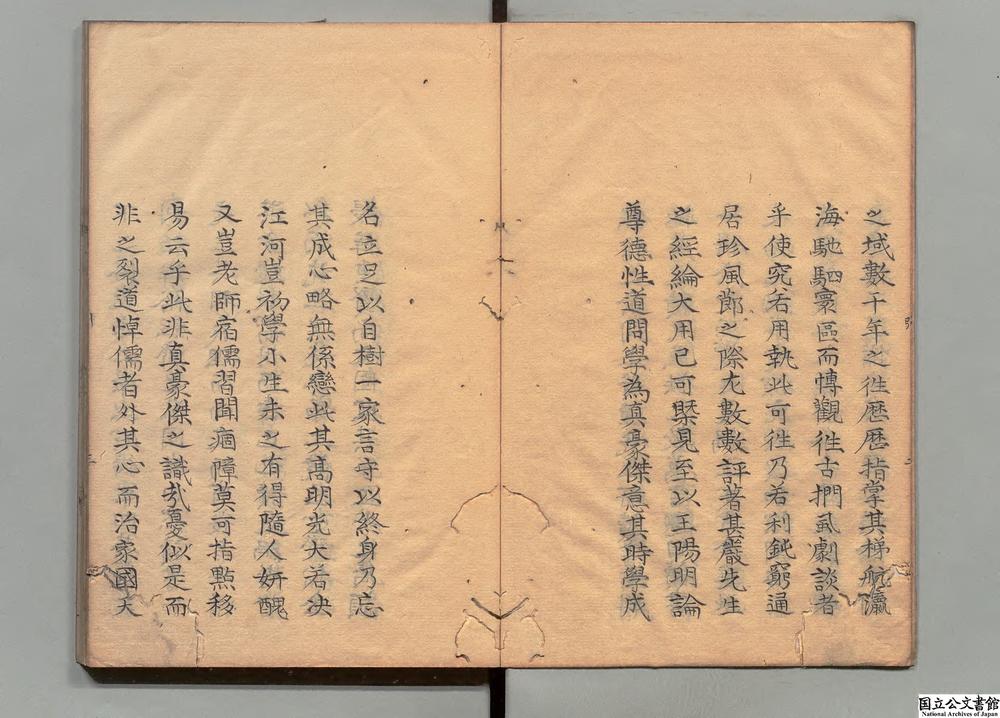 之域數千年之徃歷歷指掌其梯航瀛
海馳駟寰區而慱觀徃古捫虱劇談者
乎使究右用執此可徃乃若利鈍窮通
居珍風節之際尤數數評著甚嚴先生
之經綸大用已可槩見至以王陽明論
尊德性道問學為真豪傑意其時學成
名立足以自樹一家言守以終身乃忘
其成心略無係戀此其高明光大若决
江河豈初學小生未之有得隨人妍醜
又豈老師宿儒習聞痼障莫可指點移
易云乎此非真豪傑之識𢦏憂似是而
非之裂道悼儒者外其心而治家國天
国立公文書館
National Archives of Japan